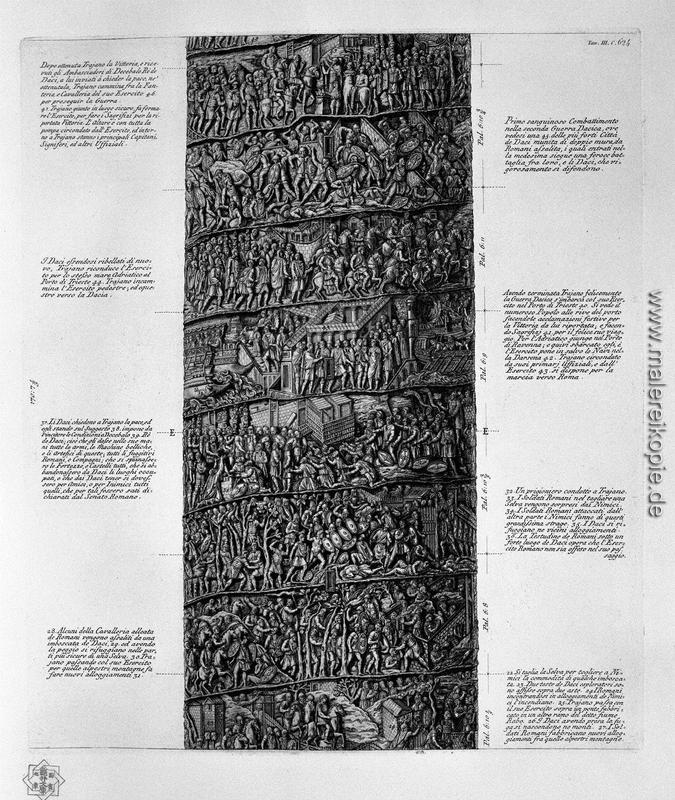 Tav. III. C. 624
Dopo ottenuta Trajano la Vittoria, e rice-
vuti gli Ambasciadori di Decebalo Rè de'
Daci, a lui inviati à chieder la pace, nè
ottenutala, Trajano cammina fra la Fan-
teria e Cavalleria del suo Esercito 46.
per proseguir la Guerra.
47. Trajano giunto in luogo sicuro, fa forma-
re l'Esercito, per fare i Sagrifizj per la ri-
portata Vittoria. L'Altare è con tutta la
pompa circondato dall'Esercito, ed intor-
no a Trajano stanno i principali Capitani,
Signiferi, ed altri Uffiziali.
Primo sanguinoso Combattimento
nella seconda Guerra Dacica, ove
vedesi una 45. delle più forti Città
de Daci munita di doppie mura, da
Romani assalita, i quali entrati nel-
la medesima siegue una feroce bat-
taglia fra loro, e li Daci, che vi-
gorosamente si difendono.
I Daci essendosi ribellati di nuo-
vo, Trajano riconduce l'Eserci-
to per lo stesso mare Adriatico al
Porto di Trieste 44. Trajano incam-
mina l'Esercito pedestre, ed eque-
stre verso la Dacia.
Avendo terminata Trajano felicemente
la Guerra Dacica s'imbarca col suo Eser-
cito nel Porto di Trieste 40. Si vede il
numeroso Popolo alle rive del porto
facendole acclamazioni festive per
la Vittoria da lui riportata; e facen-
do Sagrifizj 41. per il felice suo viag-
gio. Per l'Adriatico giunge nel Porto
di Ravenna; e quivi sbarcato esso, è
l'Esercito pone in salvo le Navi nel-
la Darsena 42. Trajano circondato
da suoi primarj Uffiziali, e dall'
Esercito 43. si dispone per la
marcia verso Roma.
37. Li Daci chiedono a Trajano la pace, ed
egli stando sul Suggesto 38. impone da
Decebalo 39. Rè
de Daci, cioè che gli dasse nelle sue ma-
ni tutte le armi, le Machine belliche,
e li Artefici di queste; tutti li fuggitivi
Romani, e Compagni; che si spianasse-
ro le Fortezze, e Castelli tutti, che si ab-
bandonassero da Daci li luoghi occu-
pati, e che dai Daci tener si doves-
sero per Amici, o per Inimici tutti
quelli, che per tali fossero stati di-
chiarati dal Senato Romano.
E
E
32. Un prigioniero condotto a Trajano.
33. I Soldati Romani nel tagliare una
Selva vengono sorpresi dai Nimici.
34. I Soldati Romani attaccati dall'
altra parte i Nimici fanno di questi
grandissima strage. 35. I Daci si ri-
fuggiano ne vicini alloggiamenti.
36. La Testudine de Romani sotto un
forte luogo de Daci opera che l'Eser-
cito Romano non sia offeso nel suo pas-
saggio.
28. Alcuni della Cavalleria alleata
de Romani vengono assaliti da una
imboscata de Daci, 29. ed avendo
la peggio si rifuggiano nelle par-
ti più sicure di una Selva. 30. Tra-
jano passando col suo Esercito
per quelle alpestri montagne, fa
fare nuovi alloggiamenti 31.
22. Si taglia la Selva per togliere a Ni-
mici la commodità di qualche imbosca-
ta. 23. Due teste de Daci esploratori so-
no affisse sopra due aste. 24. I Romani
incontrandosi in alloggiamenti de Nimi-
ci l'incendiano. 25. Trajano passa con
il suo Esercito sopra un ponte fabbri-
cato in un altro ramo del ditto fiume
Rabo. 26. I Daci avendo presa la fu-
ga si nascondono ne monti. 27. I Sol-
dati Romani fabbricano nuovi allog-
giamenti fra quelle alpestri montagne.
Pal. 6. 10
Pal. 6. 11
Pal. 6. 9
Pal. 6. 10
Pal. 6. 8
Pal. 6. 10
www.malereikopie.de